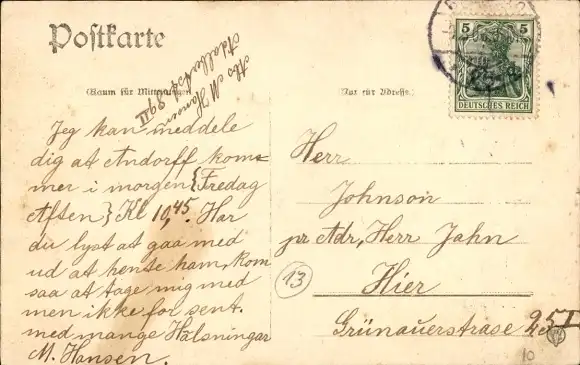 Postkarte
Raum für Mitteilungen
Nur für Adresse.
5 5
DEUTSCHES REICH
Abs M Hansen
Adalbertst 89 III
Jeg kan meddele
dig at Andorff kom=
mer i morgen {Fredag
Aften} Kl 10,45. Har
du lyst at gaa med
ud at hente ham, kom
saa at tage mig med
men ikke for sent.
med mange Hälsningar
M. Hansen.
Herr
Johnson
pr Adr, Herr Jahn
13
Hier
Grünauerstrase 25 I
10